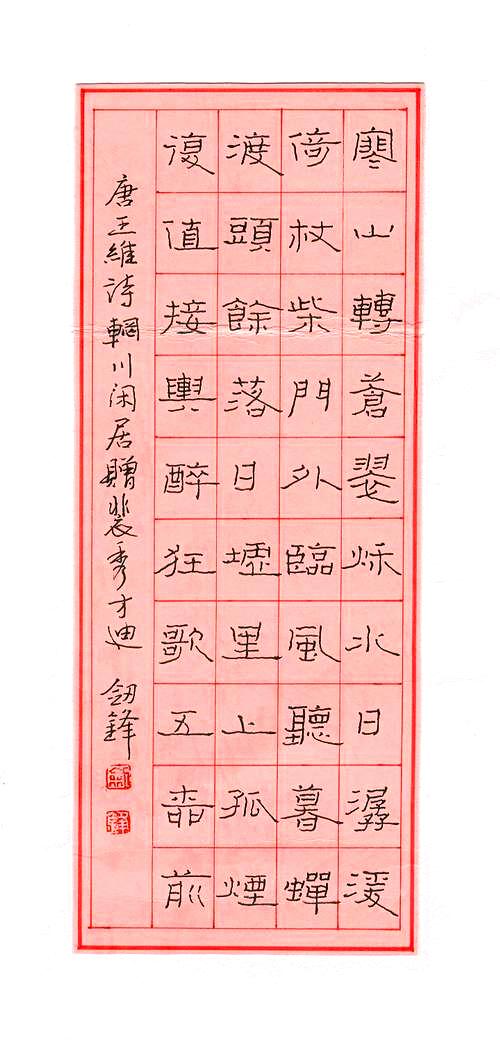 寒山轉蒼翠秋水日潺湲
倚杖柴門外臨風聽暮蟬
渡頭餘落日墟里上孤煙
復值接輿醉狂歌五柳前
唐王維詩輞川闲居贈裴秀才迪 劍鋒